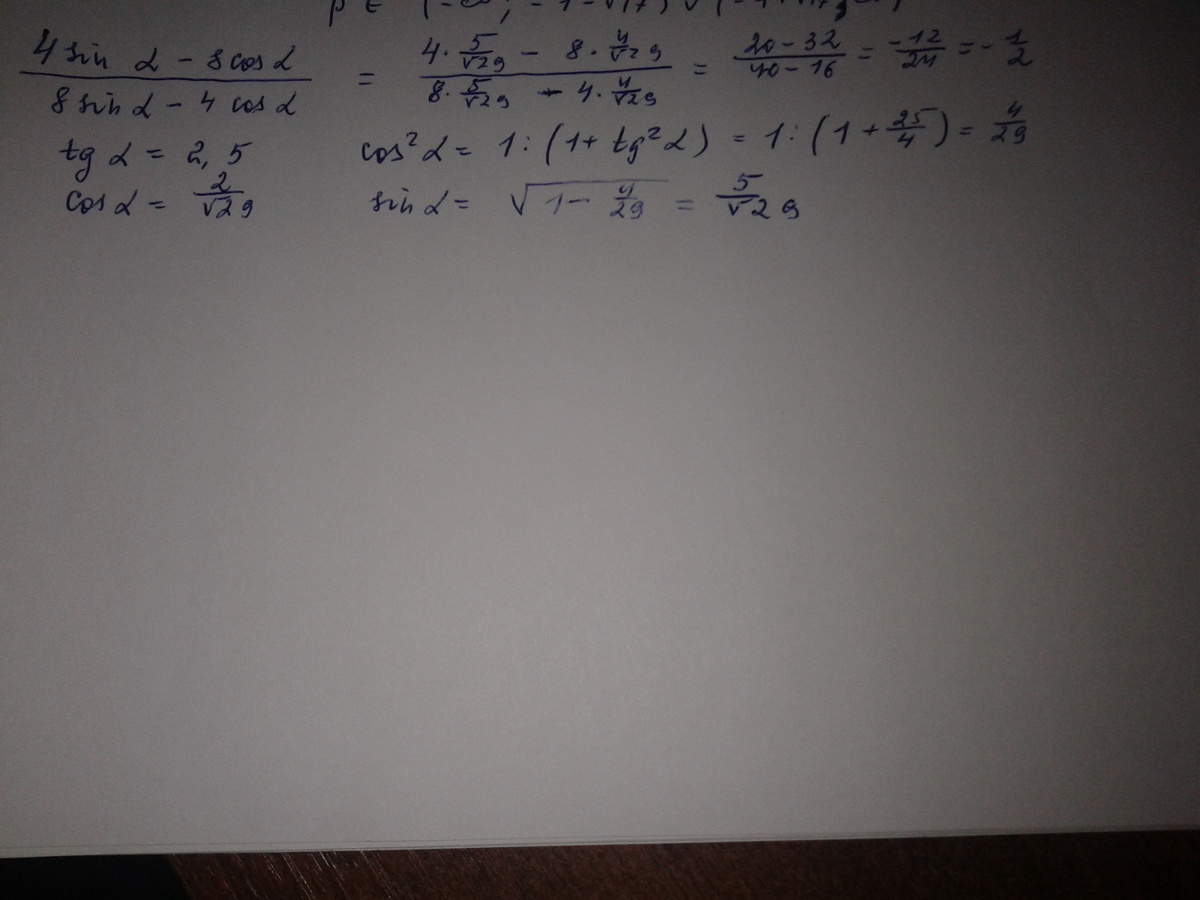 (4 sin α - 8 cos α)/(8 sin α - 4 cos α) = (4 · 5/√29 - 8 · 4/√29)/(8 · 5/√29 - 4 · 4/√29) = (20 - 32)/(40 - 16) = -12/24 = -1/2
tg α = 2,5 cos² α = 1 : (1 + tg² α) = 1 : (1 + 25/4) = 4/29
cos α = 2/√29 sin α = √(1 - 4/29) = 5/√29